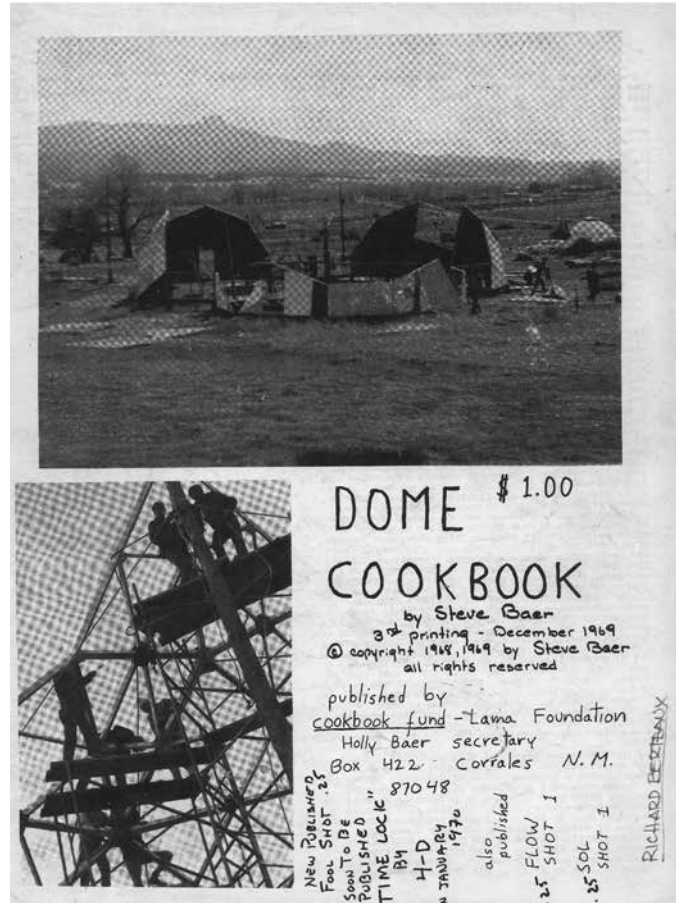 DOME $ 1.00
COOKBOOK
by Steve Baer
3rd printing - December 1969
© copyright 1968, 1969 by Steve Baer
all rights reserved
published by
cookbook fund - Lama Foundation
Holly Baer secretary
Box 422 Corrales N. M.
87048
NEW PUBLISHED
FOOL SHOT .25
SOON TO BE
PUBLISHED
"TIME LOCK"
BY
4-D
IN JANUARY
1970
also
published
.25 FLOW
SHOT 1
.25 SOL
SHOT 1
RICHARD